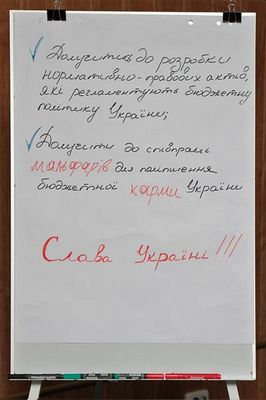 Долучитись до розробки
нормативно-правових актів,
які регламентують бюджетну
політику України;
Долучити до співпраць
мальфарів для поліпшення
бюджетної карми України
Слава Україні!!!